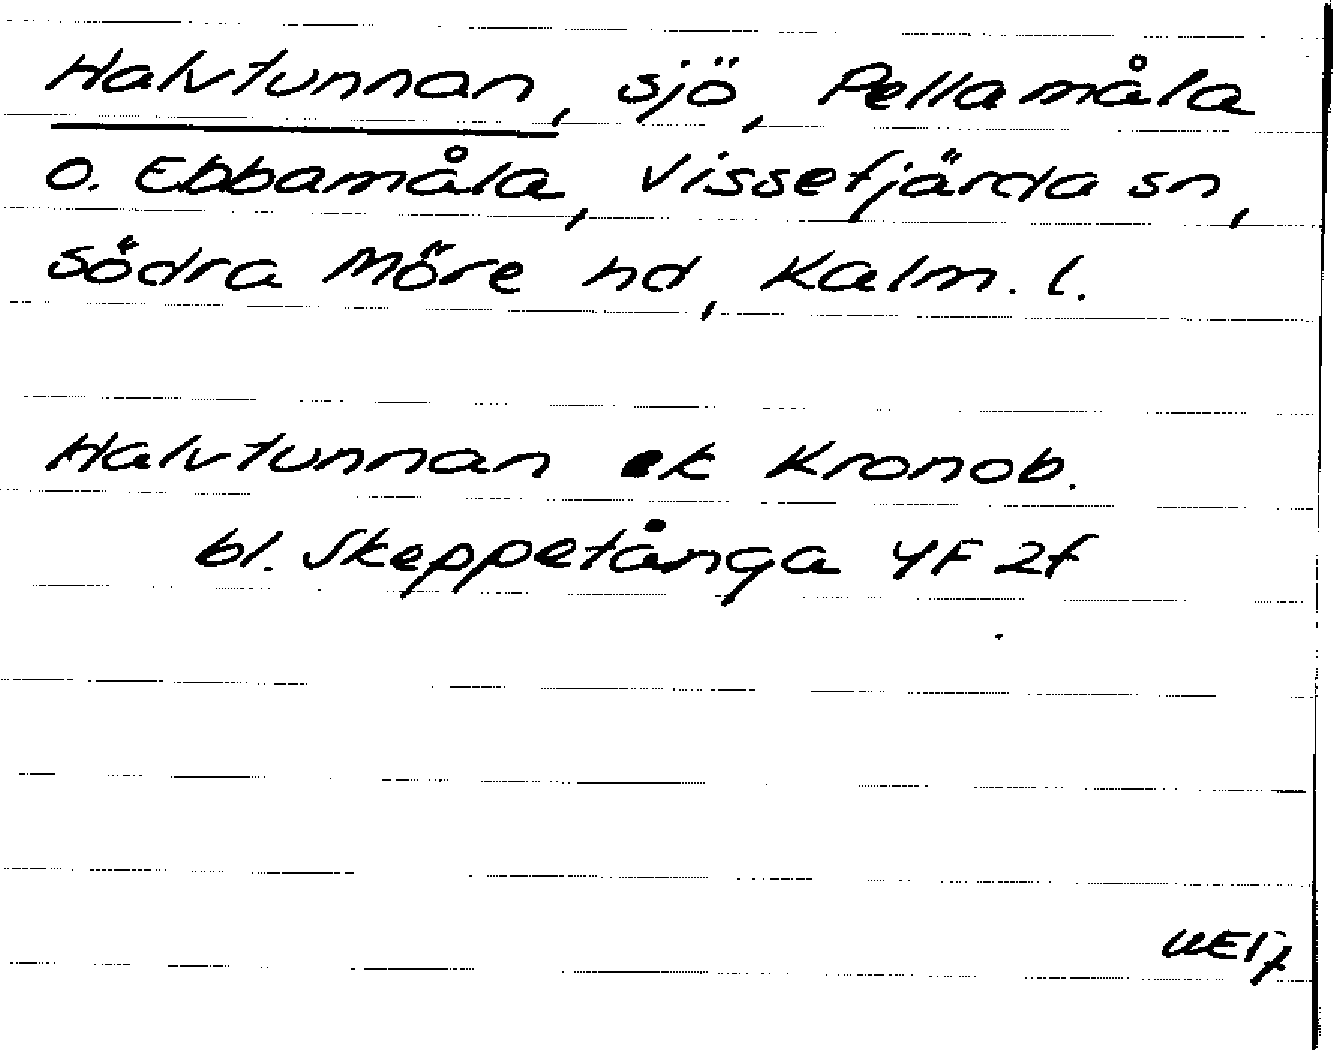 Halvtunnan, sjö, Pellamåla
o. Ebbamåla, Vissefjärda sn,
Södra Möre hd, Kalm. l.
Halvtunnan ek Kronob.
bl. Skeppetånga 4F 2f